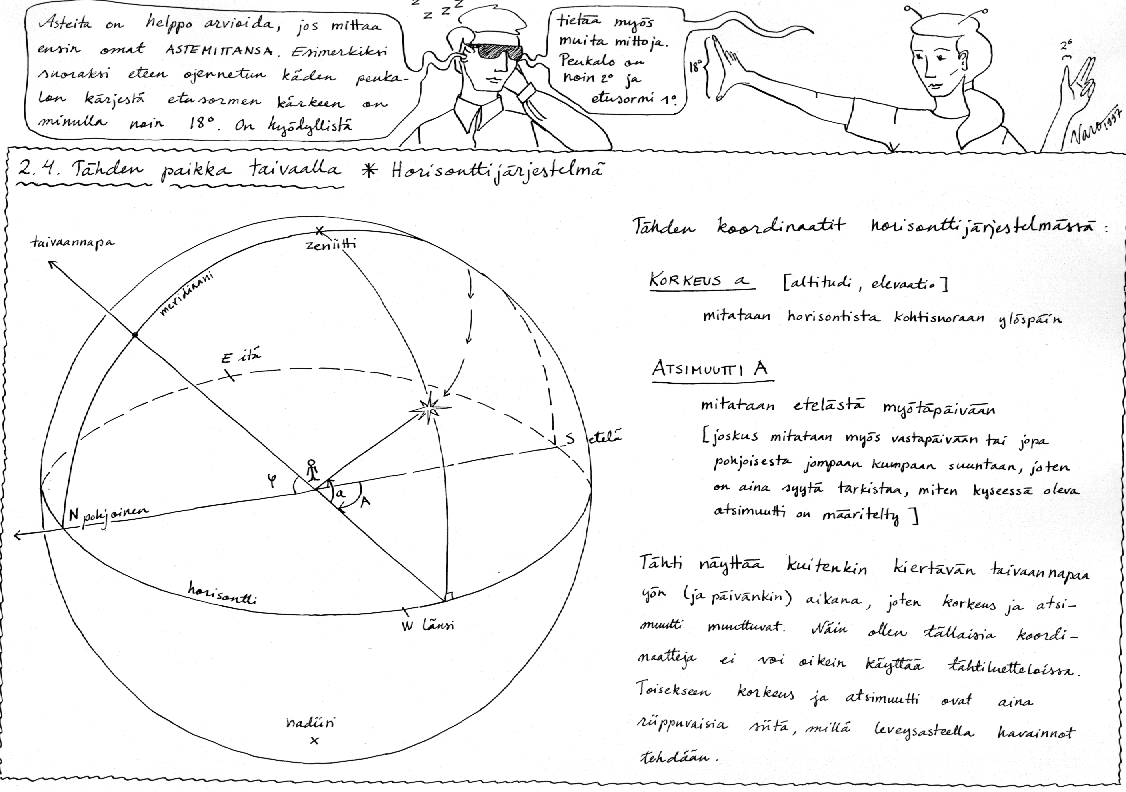 Asteita on helppo arvioida, jos mittaa
ensin omat ASTEMITTANSA. Esimerkiksi
suoraksi eteen ojennetun käden peuka-
lon kärjestä etusormen kärkeen on
minulla noin 18°. On hyödyllistä
z z z z z
tietää myös
muita mittoja.
Peukalo on
noin 2° ja
etusormi 1°.
18°
2°
2.4. Tähden paikka taivaalla * Horisonttijärjestelmä
taivaannapa
zeniitti
meridiaani
E itä
S etelä
φ
a
A
N pohjoinen
horisontti
W länsi
nadiiri
x
Tähden koordinaatit horisonttijärjestelmässä:
KORKEUS a [altitudi, elevaatio]
mitataan horisontista kohtisuoraan ylöspäin
ATSIMUUTTI A
mitataan etelästä myötäpäivään
[joskus mitataan myös vastapäivään tai jopa
pohjoisesta jompaan kumpaan suuntaan, joten
on aina syytä tarkistaa, miten kyseessä oleva
atsimuutti on määritelty]
Tähti näyttää kuitenkin kiertävän taivaannapaa
yön (ja päivänkin) aikana, joten korkeus ja atsi-
muutti muuttuvat. Näin ollen tällaisia koordi-
naatteja ei voi oikein käyttää tähtiluetteloissa.
Toisekseen korkeus ja atsimuutti ovat aina
riippuvaisia siitä, millä leveysasteella havainnot
tehdään.